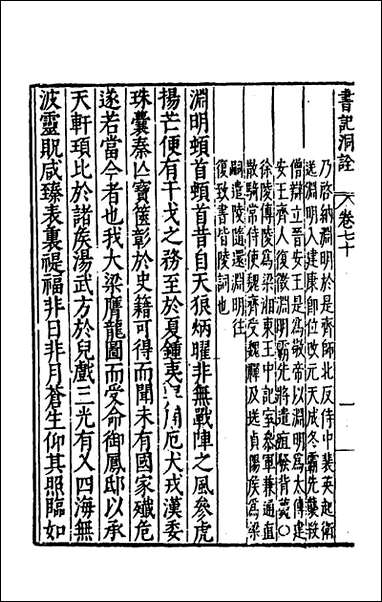 書記洞詮 卷七十 一
乃啓納淵明於是齊師北反侍中裴英起衛
送淵明入建康即位改元天成冬霸先襲殺
僧辯立晉安王是為敬帝以淵明為太傅建
安王齊人復徵淵明霸先將遣疽發背薨○
徐陵傳陵為梁湘東王中記室參軍兼通直
散騎常侍使魏齊受魏釋及送貞陽侯為梁
嗣遣陵隨還淵明往
復致書皆陵詞也
淵明頓首頓首昔自天狼炳曜非無戰陣之風參虎
揚芒便有干戈之務至於夏鍾夷厄犬戎漢委
珠囊秦亾寶篋彰於史籍可得而聞未有國家殲危
遂若當今者也我大梁膺龍圖而受命御鳳邸以承
天軒頊比於諸侯湯武方於兒戲三光有乂四海無
波靈貺咸臻表裏禔福非日非月蒼生仰其照臨如